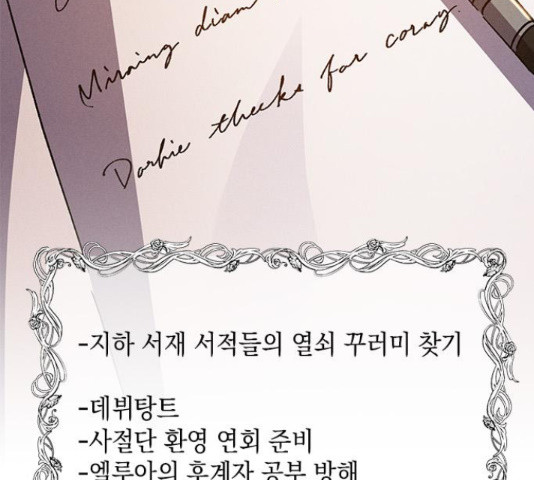 Mirning diam
Dorhie theeks for corny.
-지하 서재 서적들의 열쇠 꾸러미 찾기
-데뷔탕트
-사절단 환영 연회 준비
-엘루아의 후계자 공부 방해